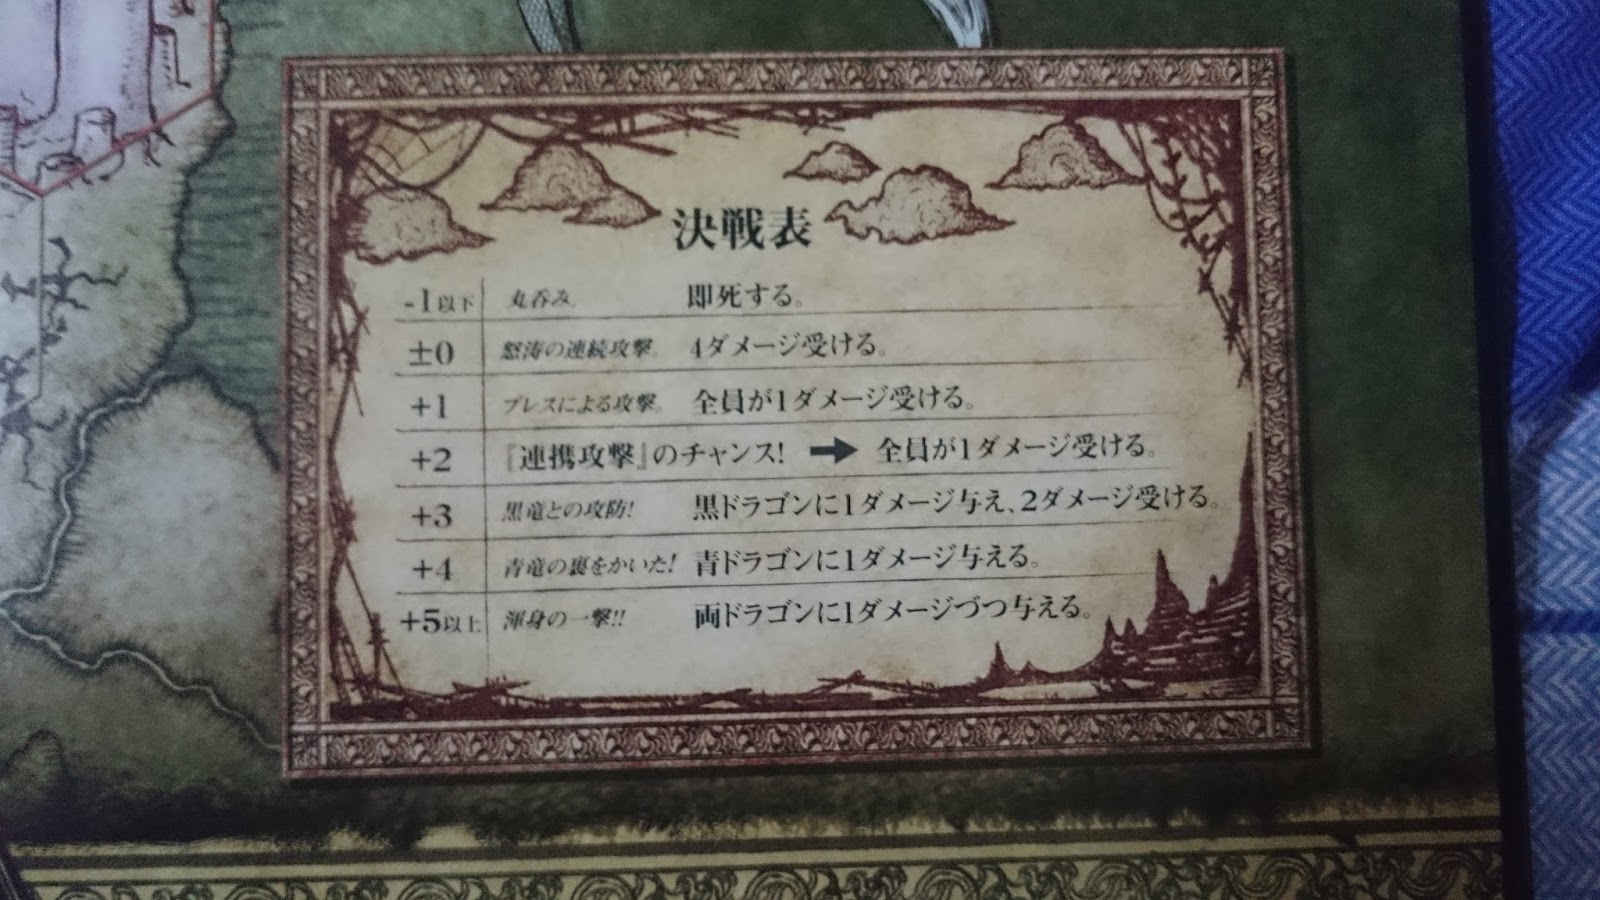 決戦表
-1以下 丸呑み。 即死する。
±0 怒涛の連続攻撃。 4ダメージ受ける。
+1 ブレスによる攻撃。 全員が1ダメージ受ける。
+2 『連携攻撃』のチャンス! ➡ 全員が1ダメージ受ける。
+3 黒竜との攻防! 黒ドラゴンに1ダメージ与え、2ダメージ受ける。
+4 青竜の裏をかいた! 青ドラゴンに1ダメージ与える。
+5以上 渾身の一撃!! 両ドラゴンに1ダメージづつ与える。